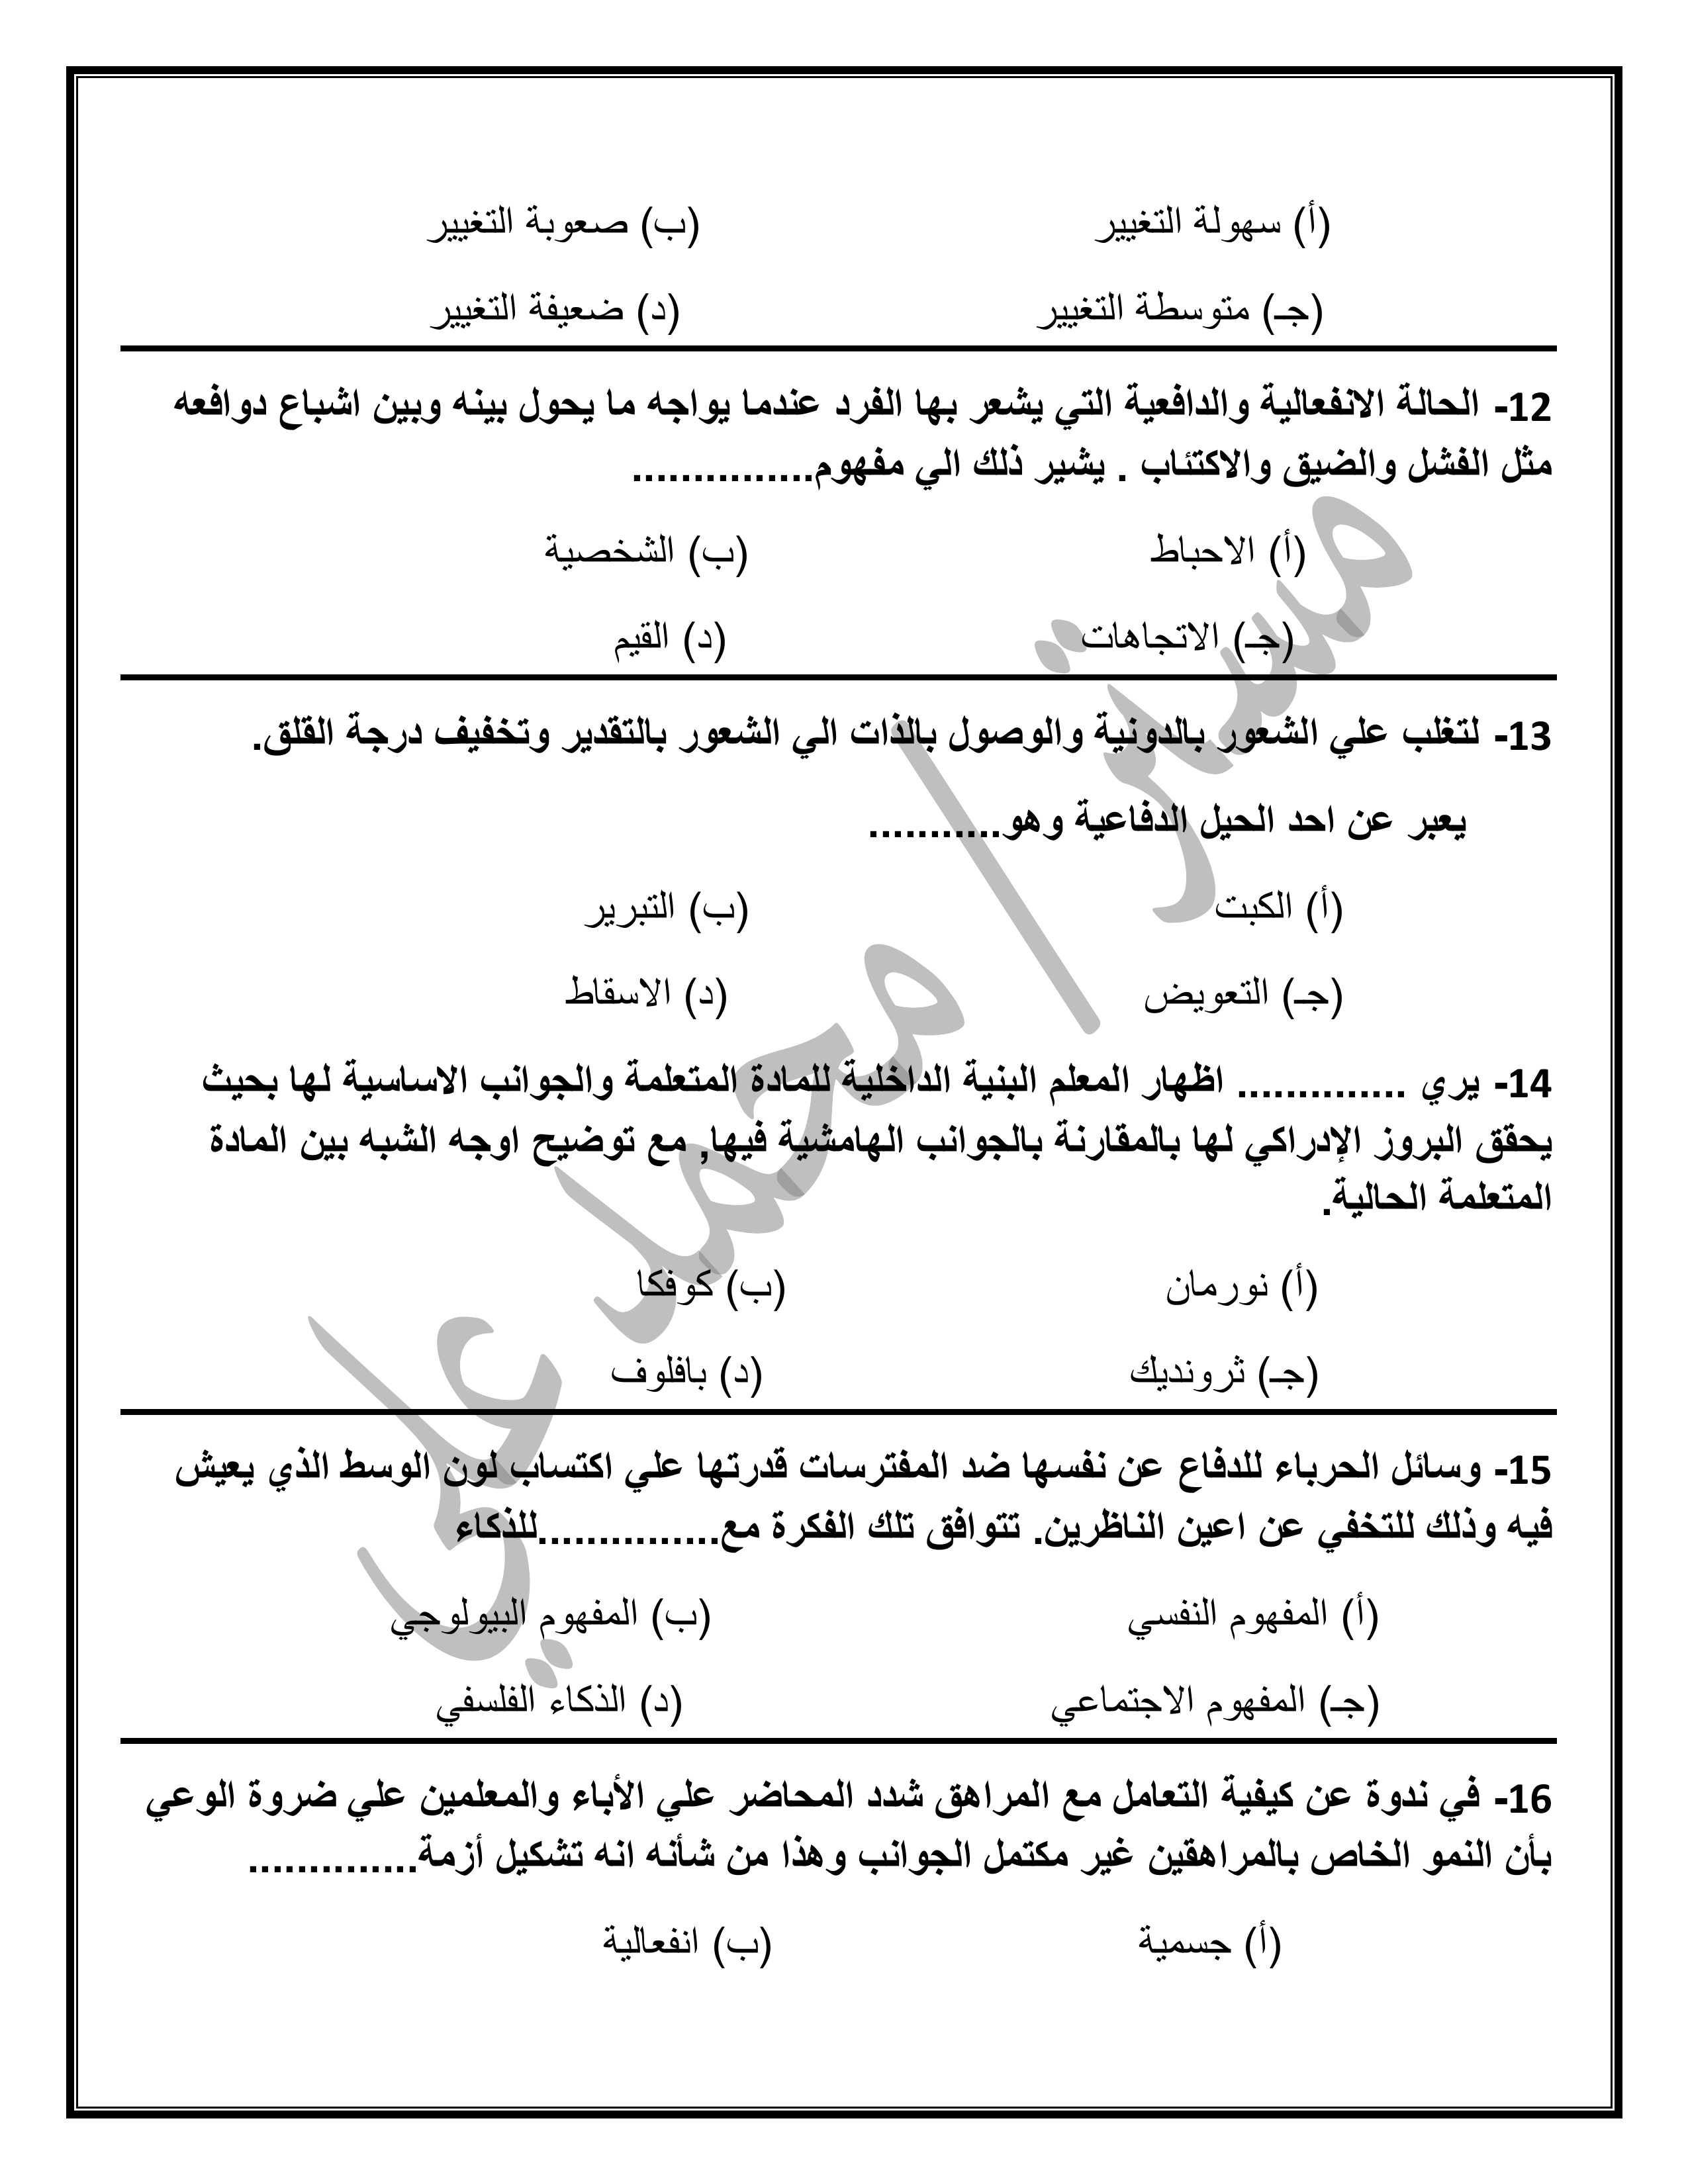 (أ) سهولة التغيير (ب) صعوبة التغيير
(جـ) متوسطة التغيير (د) ضعيفة التغيير
12- الحالة الانفعالية والدافعية التي يشعر بها الفرد عندما يواجه ما يحول بينه وبين اشباع دوافعه
مثل الفشل والضيق والاكتئاب . يشير ذلك الي مفهوم...............
(أ) الاحباط (ب) الشخصية
(جـ) الاتجاهات (د) القيم
13- لتغلب علي الشعور بالدونية والوصول بالذات الي الشعور بالتقدير وتخفيف درجة القلق.
يعبر عن احد الحيل الدفاعية وهو...........
(أ) الكبت (ب) التبرير
(جـ) التعويض (د) الاسقاط
14- يري .............. اظهار المعلم البنية الداخلية للمادة المتعلمة والجوانب الاساسية لها بحيث
يحقق البروز الإدراكي لها بالمقارنة بالجوانب الهامشية فيها, مع توضيح اوجه الشبه بين المادة
المتعلمة الحالية.
(أ) نورمان (ب) كوفكا
(جـ) ثرونديك (د) بافلوف
15- وسائل الحرباء للدفاع عن نفسها ضد المفترسات قدرتها علي اكتساب لون الوسط الذي يعيش
فيه وذلك للتخفي عن اعين الناظرين. تتوافق تلك الفكرة مع...............للذكاء
(أ) المفهوم النفسي (ب) المفهوم البيولوجي
(جـ) المفهوم الاجتماعي (د) الذكاء الفلسفي
16- في ندوة عن كيفية التعامل مع المراهق شدد المحاضر علي الأباء والمعلمين علي ضروة الوعي
بأن النمو الخاص بالمراهقين غير مكتمل الجوانب وهذا من شأنه انه تشكيل أزمة..............
(أ) جسمية (ب) انفعالية
مستر/ محمد علي